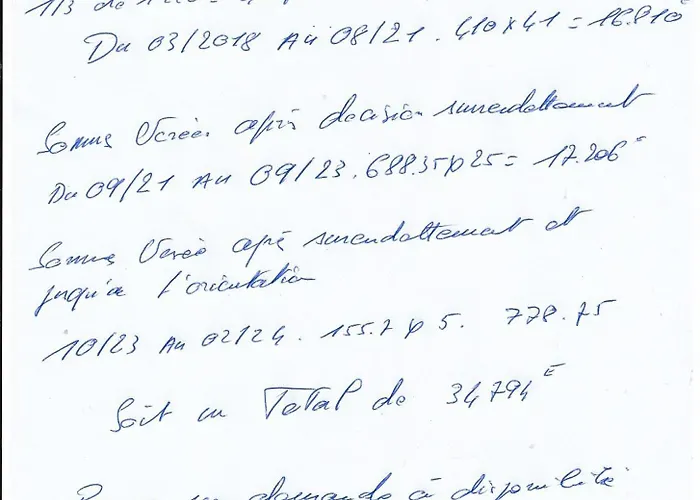 1/3 de
Du 03/2018 Au 08/21. 410x41 = 16.810€
Somme Versée après decision surendettement
Du 09/21 Au 09/23. 688.35x25 = 17.206€
Somme Versée après surendettement et
jusqu'a l'orientation
10/23 Au 02/24. 155.7 x 5. 778.75
Soit un Total de 34794€
demande à disponibilité